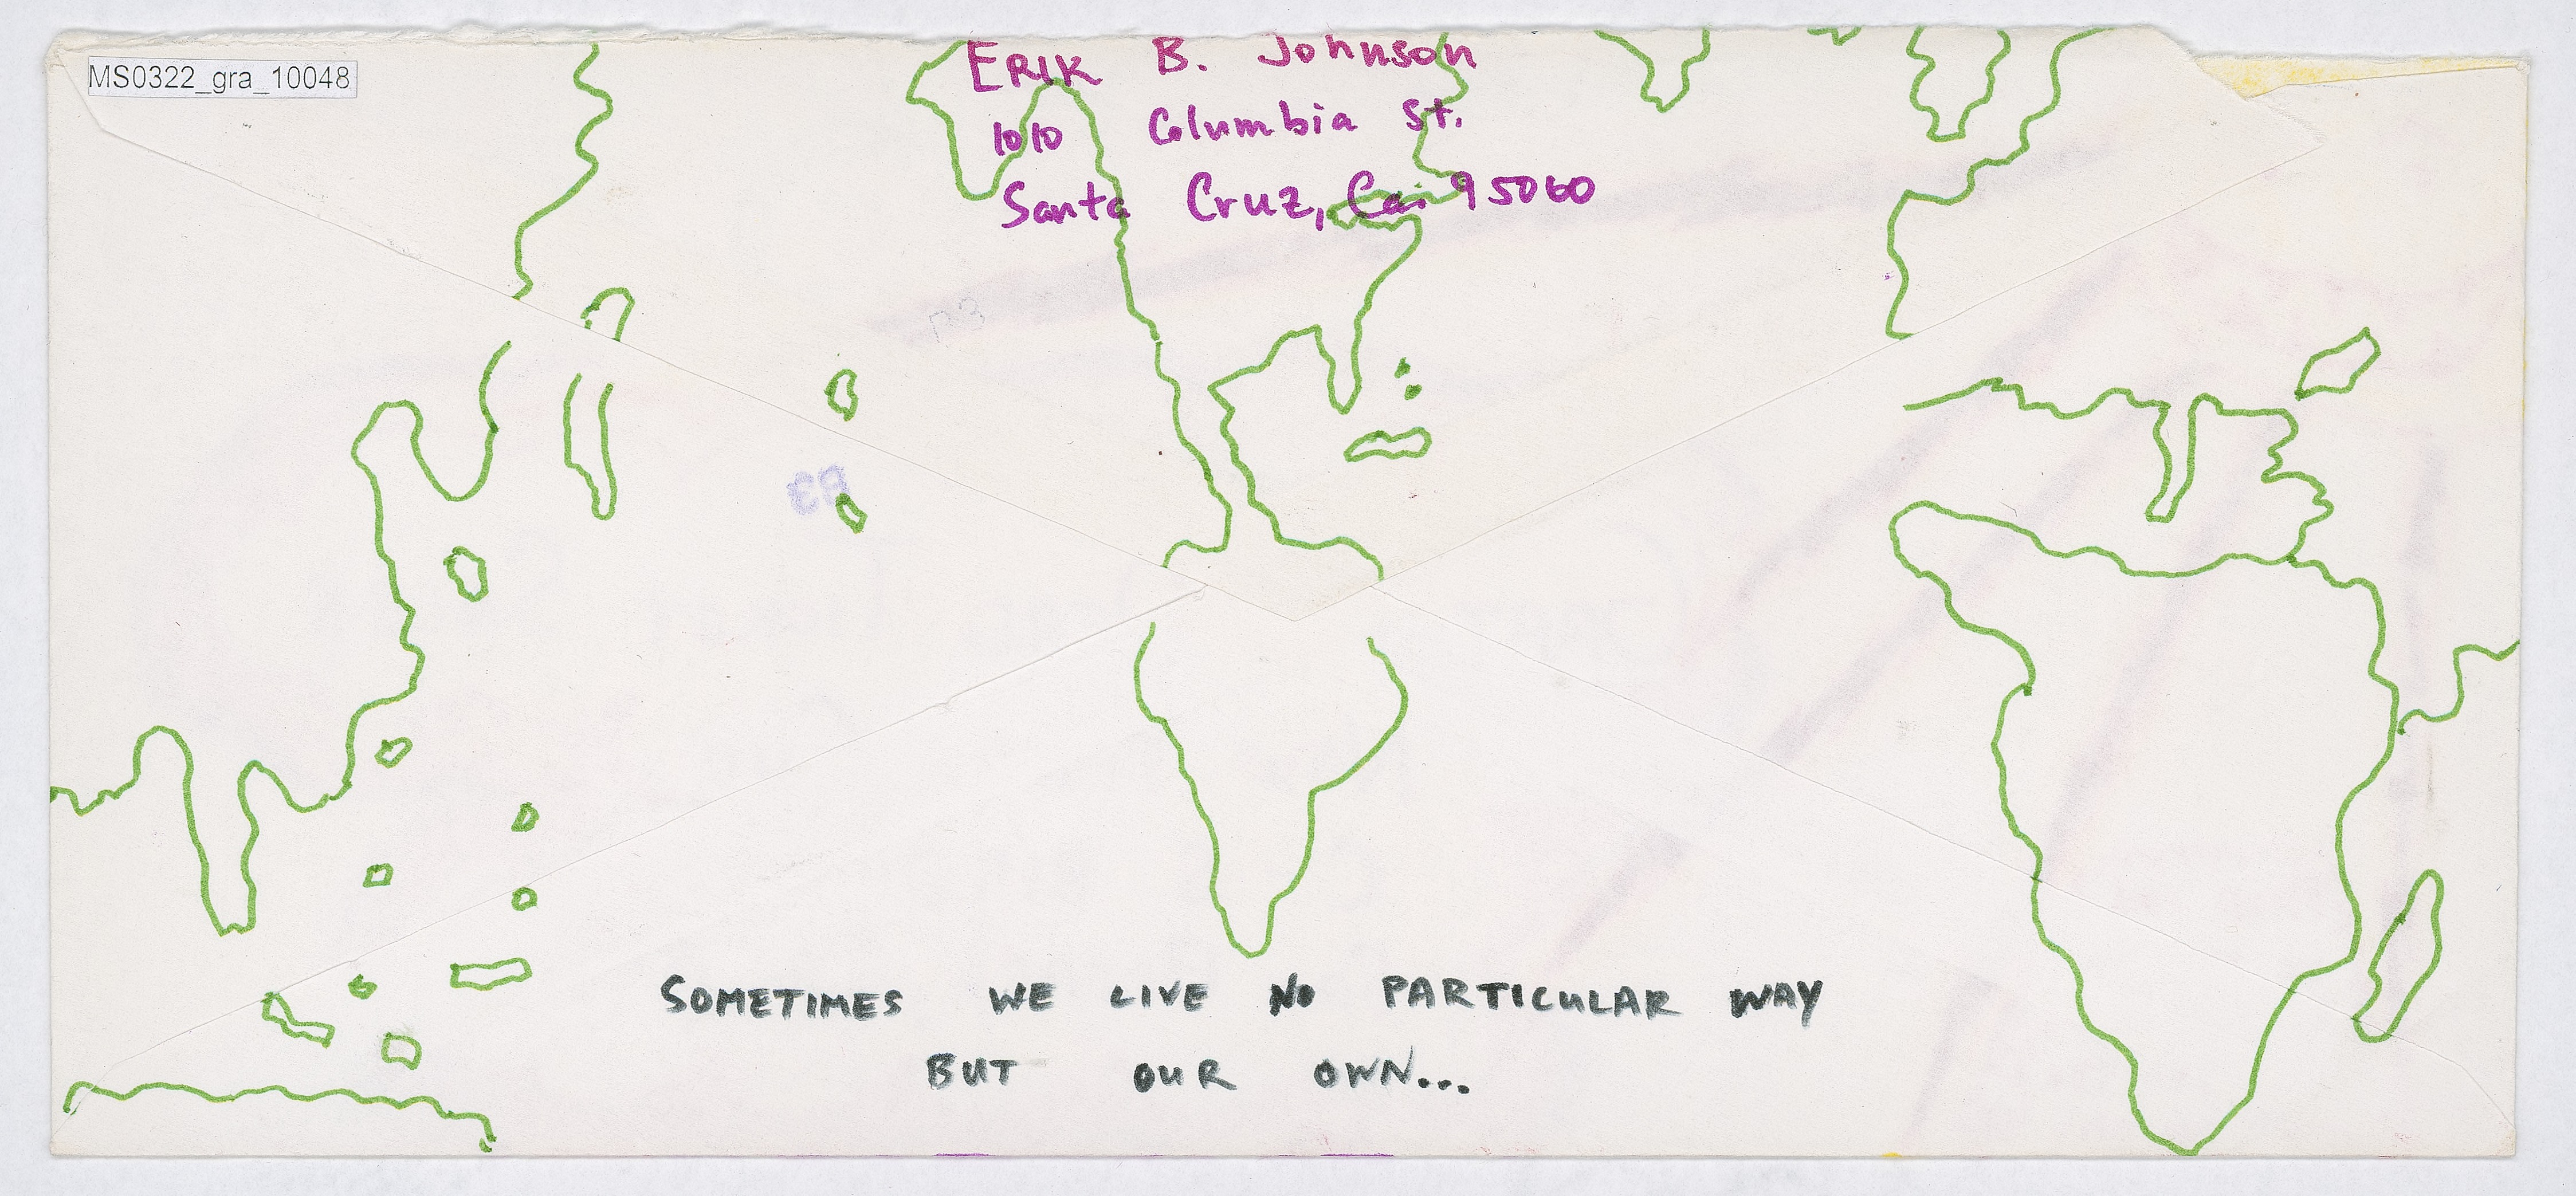 MS0322_gra_10048
ERIK B. Johnson
1010 Columbia St.
Santa Cruz, Ca. 95060
SOMETIMES WE LIVE NO PARTICULAR WAY
BUT OUR OWN...